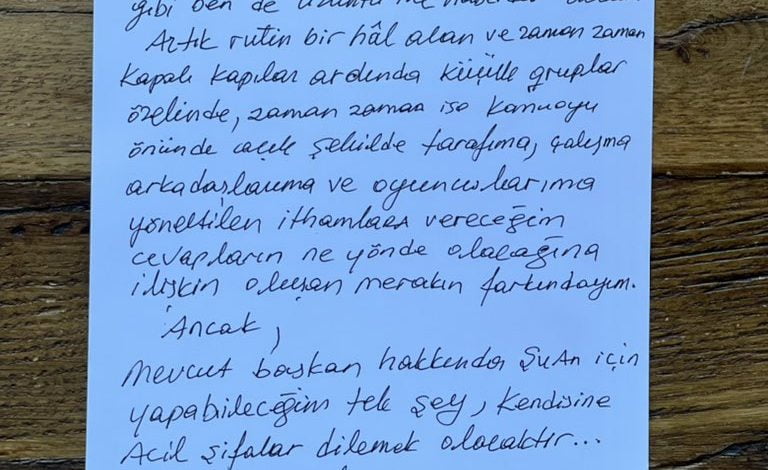 gibi ben de
Artık rutin bir hâl alan ve zaman zaman
kapalı kapılar ardında küçük gruplar
özelinde, zaman zaman ise kamuoyu
önünde açık şekilde tarafıma, çalışma
arkadaşlarıma ve oyuncularıma
yöneltilen ithamlara vereceğim
cevapların ne yönde olacağına
ilişkin oluşan merakın farkındayım.
Ancak,
Mevcut başkan hakkında şu an için
yapabileceğim tek şey, kendisine
Acil şifalar dilemek olacaktır...